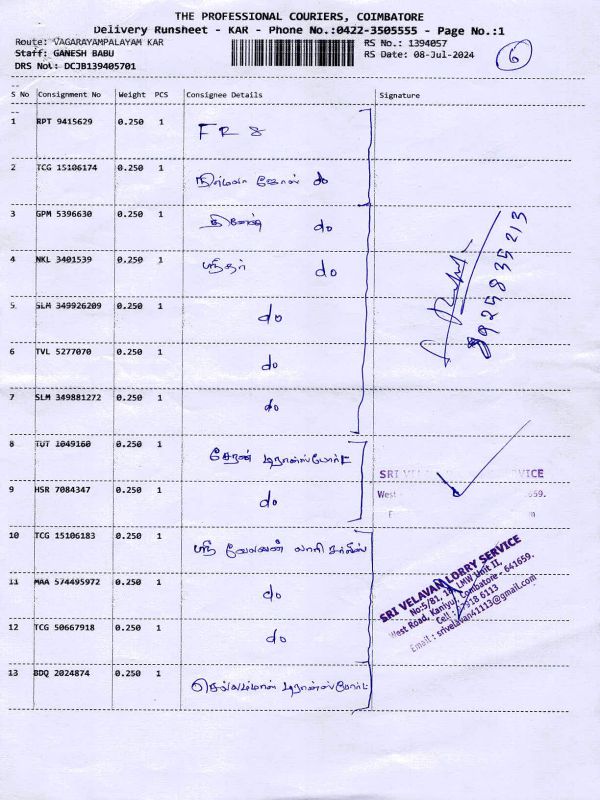 THE PROFESSIONAL COURIERS, COIMBATORE
Delivery Runsheet - KAR - Phone No.:0422-3505555 - Page No.:1
Route: VAGARAYAMPALAYAM KAR
RS No.: 1394057
Staff: GANESH BABU
RS Date: 08-Jul-2024
DRS No.: DCJB139405701
6
S No Consignment No Weight PCS Consignee Details Signature
1 RPT 9415629 0.250 1 FR 8
2 TCG 15106174 0.250 1 நிர்மலா do
3 GPM 5396630 0.250 1 தினேஷ் do
4 NKL 3401539 0.250 1 ஸ்ரீதர் do
5 SLM 349926209 0.250 1 do
6 TVL 5277070 0.250 1 do
7 SLM 349881272 0.250 1 do
8925835213
8 TUT 1049160 0.250 1 சேரன் டிரான்ஸ்போர்ட்
SRI VELAVAN SERVICE
9 HSR 7084347 0.250 1 do
West 659.
10 TCG 15106183 0.250 1 ஸ்ரீ வேலவன் லாரி சர்வீஸ்
11 MAA 574495972 0.250 1 do
12 TCG 50667918 0.250 1 do
13 BDQ 2024874 0.250 1 டிரான்ஸ்போர்ட்
SRI VELAVAN LORRY SERVICE
No:5/81, LMW Unit II,
West Road, Kaniyur, Coimbatore - 641659.
Cell : 6113
Email : srivelavan41113@gmail.com